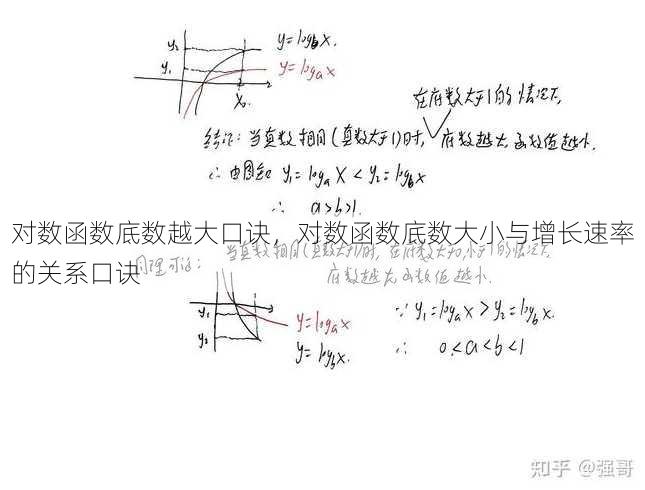 y₂
y=log_b x.
y₁
y=log_a x
x₀
在底数大于1的情况下,
结论:当真数相同(真数大于1)时, 底数越大,函数值越小.
∴由图知 y₁=log_a x<y₂=log_b x
∴ a>b>1.
对数函数底数越大口诀,对数函数底数大小与增长速率
的关系口诀
同理可证: 当真数相同(真数大于1)时, 在底数大于0,小于1的情况下,
底数越大,函数值越小.
y₁
y₂
y=log_a x
y=log_b x.
∵y₁=log_a x>y₂=log_b x.
∴ 0<a<b<1
知乎 @强哥